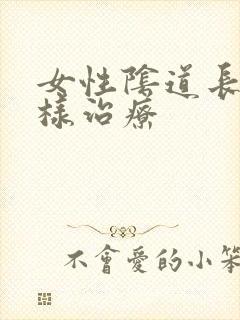 女性陰道長
樣治療
不會愛的小笨